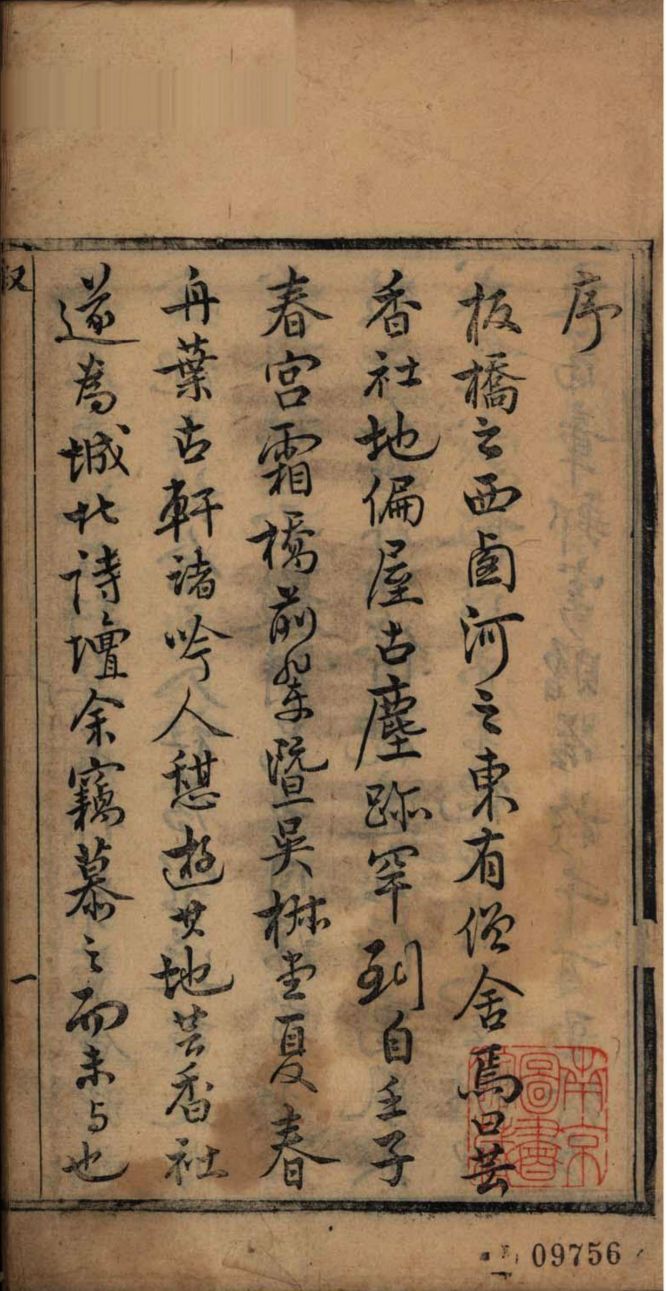 序
板橋之西鹵河之東有僧舍焉曰芸
香社地偏屋古塵跡罕到自王子
春宮霜橋前輩暨吳楙堂夏春
舟葉古軒諸吟人憩遊其地芸香社
遂為城北詩壇余竊慕之而未与也
一
南京
圖書
09756